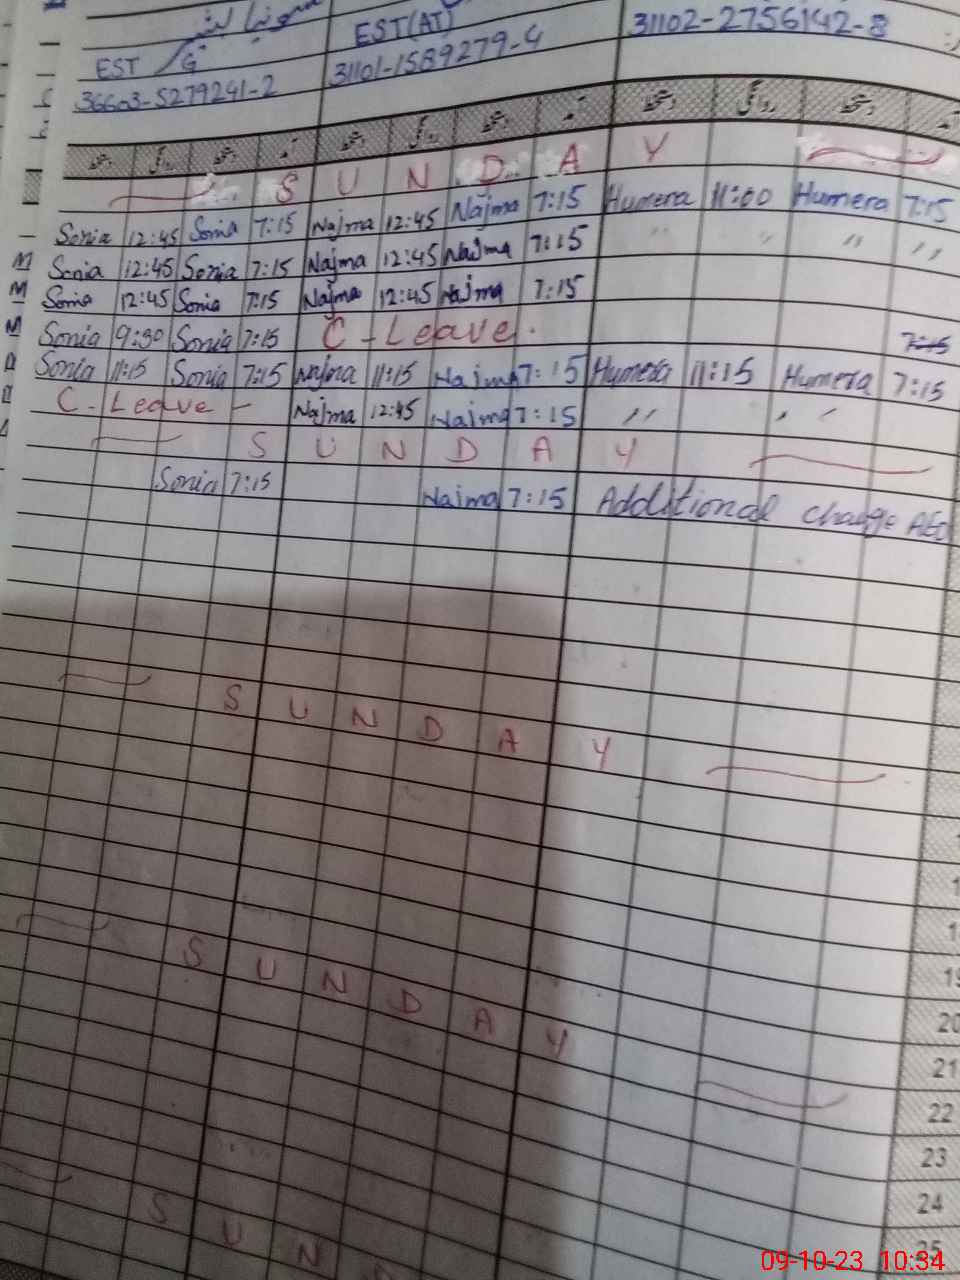 سونیا بشیر
EST G EST(AT) 31102-2756142-8
36603-5279241-2 31101-1589279-4
دستخط روانگی دستخط آمد دستخط روانگی دستخط آمد دستخط روانگی دستخط آمد
S U N D A Y
Sonia 12:45 Sonia 7:15 Najma 12:45 Najma 7:15 Humera 11:00 Humera 7:15
Sonia 12:45 Sonia 7:15 Najma 12:45 Najma 7:15 " " " "
Sonia 12:45 Sonia 7:15 Najma 12:45 Najma 7:15
Sonia 9:30 Sonia 7:15 C - Leave. 7:15
Sonia 11:15 Sonia 7:15 Najma 11:15 Najma 7:15 Humera 11:15 Humera 7:15
C - Leave - Najma 12:45 Najma 7:15 " "
S U N D A Y
Sonia 7:15 Najma 7:15 Additional charge AEO
S U N D A Y
S U N D A Y
19
20
21
22
23
24
S U N D
25
09-10-23 10:34